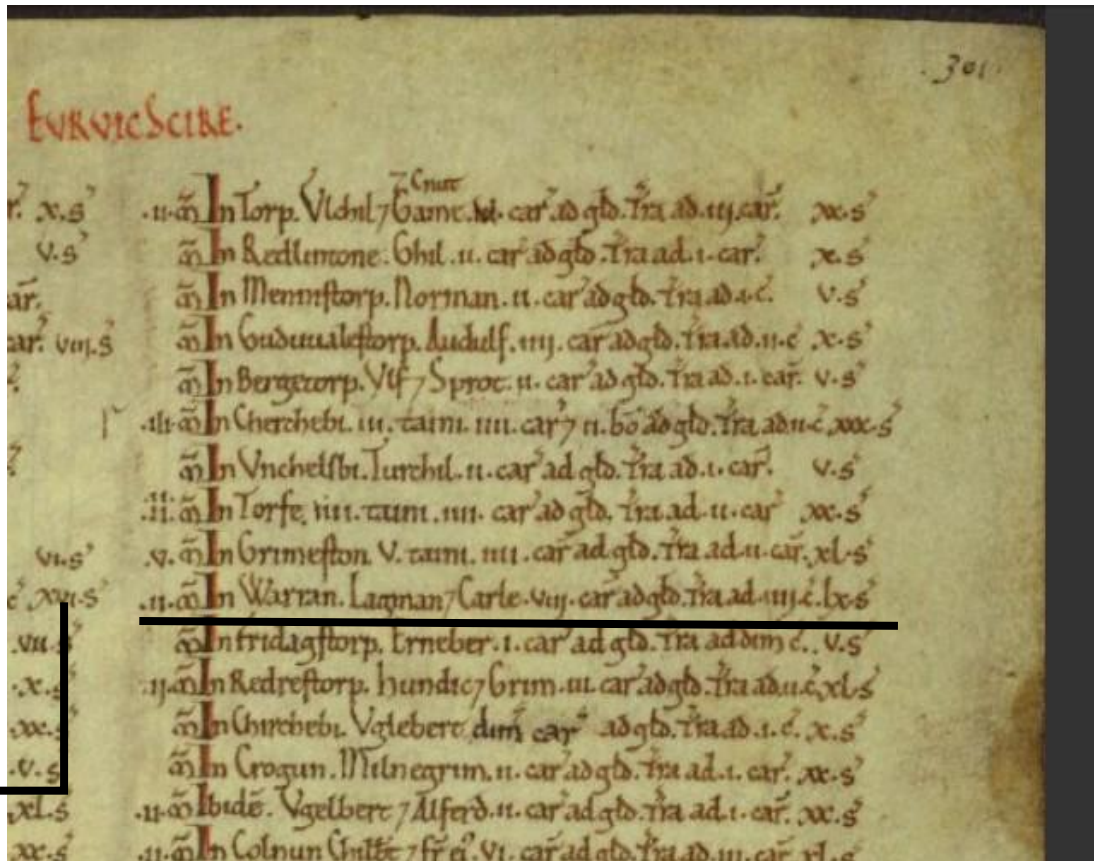 .301.
EVRVICSCIRE.
r. x.s'
v.s'
ar.
car. viii.s
vi.s'
c xvi.s
.vii.s
.x.s
xx.s
.v.s
xl.s
xx.s
7 Cnut
.ii.m̃ In Torp. Vlchil 7 Gamt. car̃ ad gld̃. Tr̃a ad .iij. car̃. xx.s'
m̃ In Redlintone. Ghil .ii. car̃ ad gld̃. Tr̃a ad .i. car̃. x.s'
m̃ In Mennistorp. Norman .ii. car̃ ad gld̃. Tr̃a ad .i. c̃. v.s'
m̃ In Guduualestorp. Audulf .iiij. car̃ ad gld̃. Tr̃a ad .ii. c̃ x.s'
m̃ In Bergetorp. Vlf 7 Sprot .ii. car̃ ad gld̃. Tr̃a ad .i. car̃. v.s'
.iii. m̃ In Cherchebi. iii. taini. iiii. car̃ 7 ii. bõ ad gld̃. Tr̃a ad ii. c̃. xxx.s'
m̃ In Vnchelsbi. Turchil .ii. car̃ ad gld̃. Tr̃a ad .i. car̃. v.s'
.ii. m̃ In Torfe. iiii. taini. iiii. car̃ ad gld̃. Tr̃a ad .ii. car̃ xx.s'
.v. m̃ In Grimeston. V. taini. iiii. car̃ ad gld̃. Tr̃a ad .ii. car̃. xl.s'
.ii. m̃ In Warran. Lagman 7 Carle .viij. car̃ ad gld̃. Tr̃a ad .iiij. c̃. lx.s'
m̃ In fridagstorp. Erneber .i. car̃ ad gld̃. Tr̃a ad dim̃ c̃. v.s'
.ij. m̃ In Redrestorp. hundic 7 Grim .iii. car̃ ad gld̃. Tr̃a ad .ii. c̃. xl.s'
m̃ In Chirchebi. Vglebert dim̃ car̃ ad gld̃. Tr̃a ad .i. c̃. x.s'
m̃ In Crogun. Milnegrim .ii. car̃ ad gld̃. Tr̃a ad .i. car̃. xx.s'
.ii. m̃ Ibidẽ. Vgelbert 7 Alferd .ii. car̃ ad gld̃. Tr̃a ad .i. car̃. xx.s'
.ii. m̃ In Colnun Chilbt̃ 7 fr̃ ei'. vi. car̃ ad gld̃. Tr̃a ad .iii. car̃. xl.s